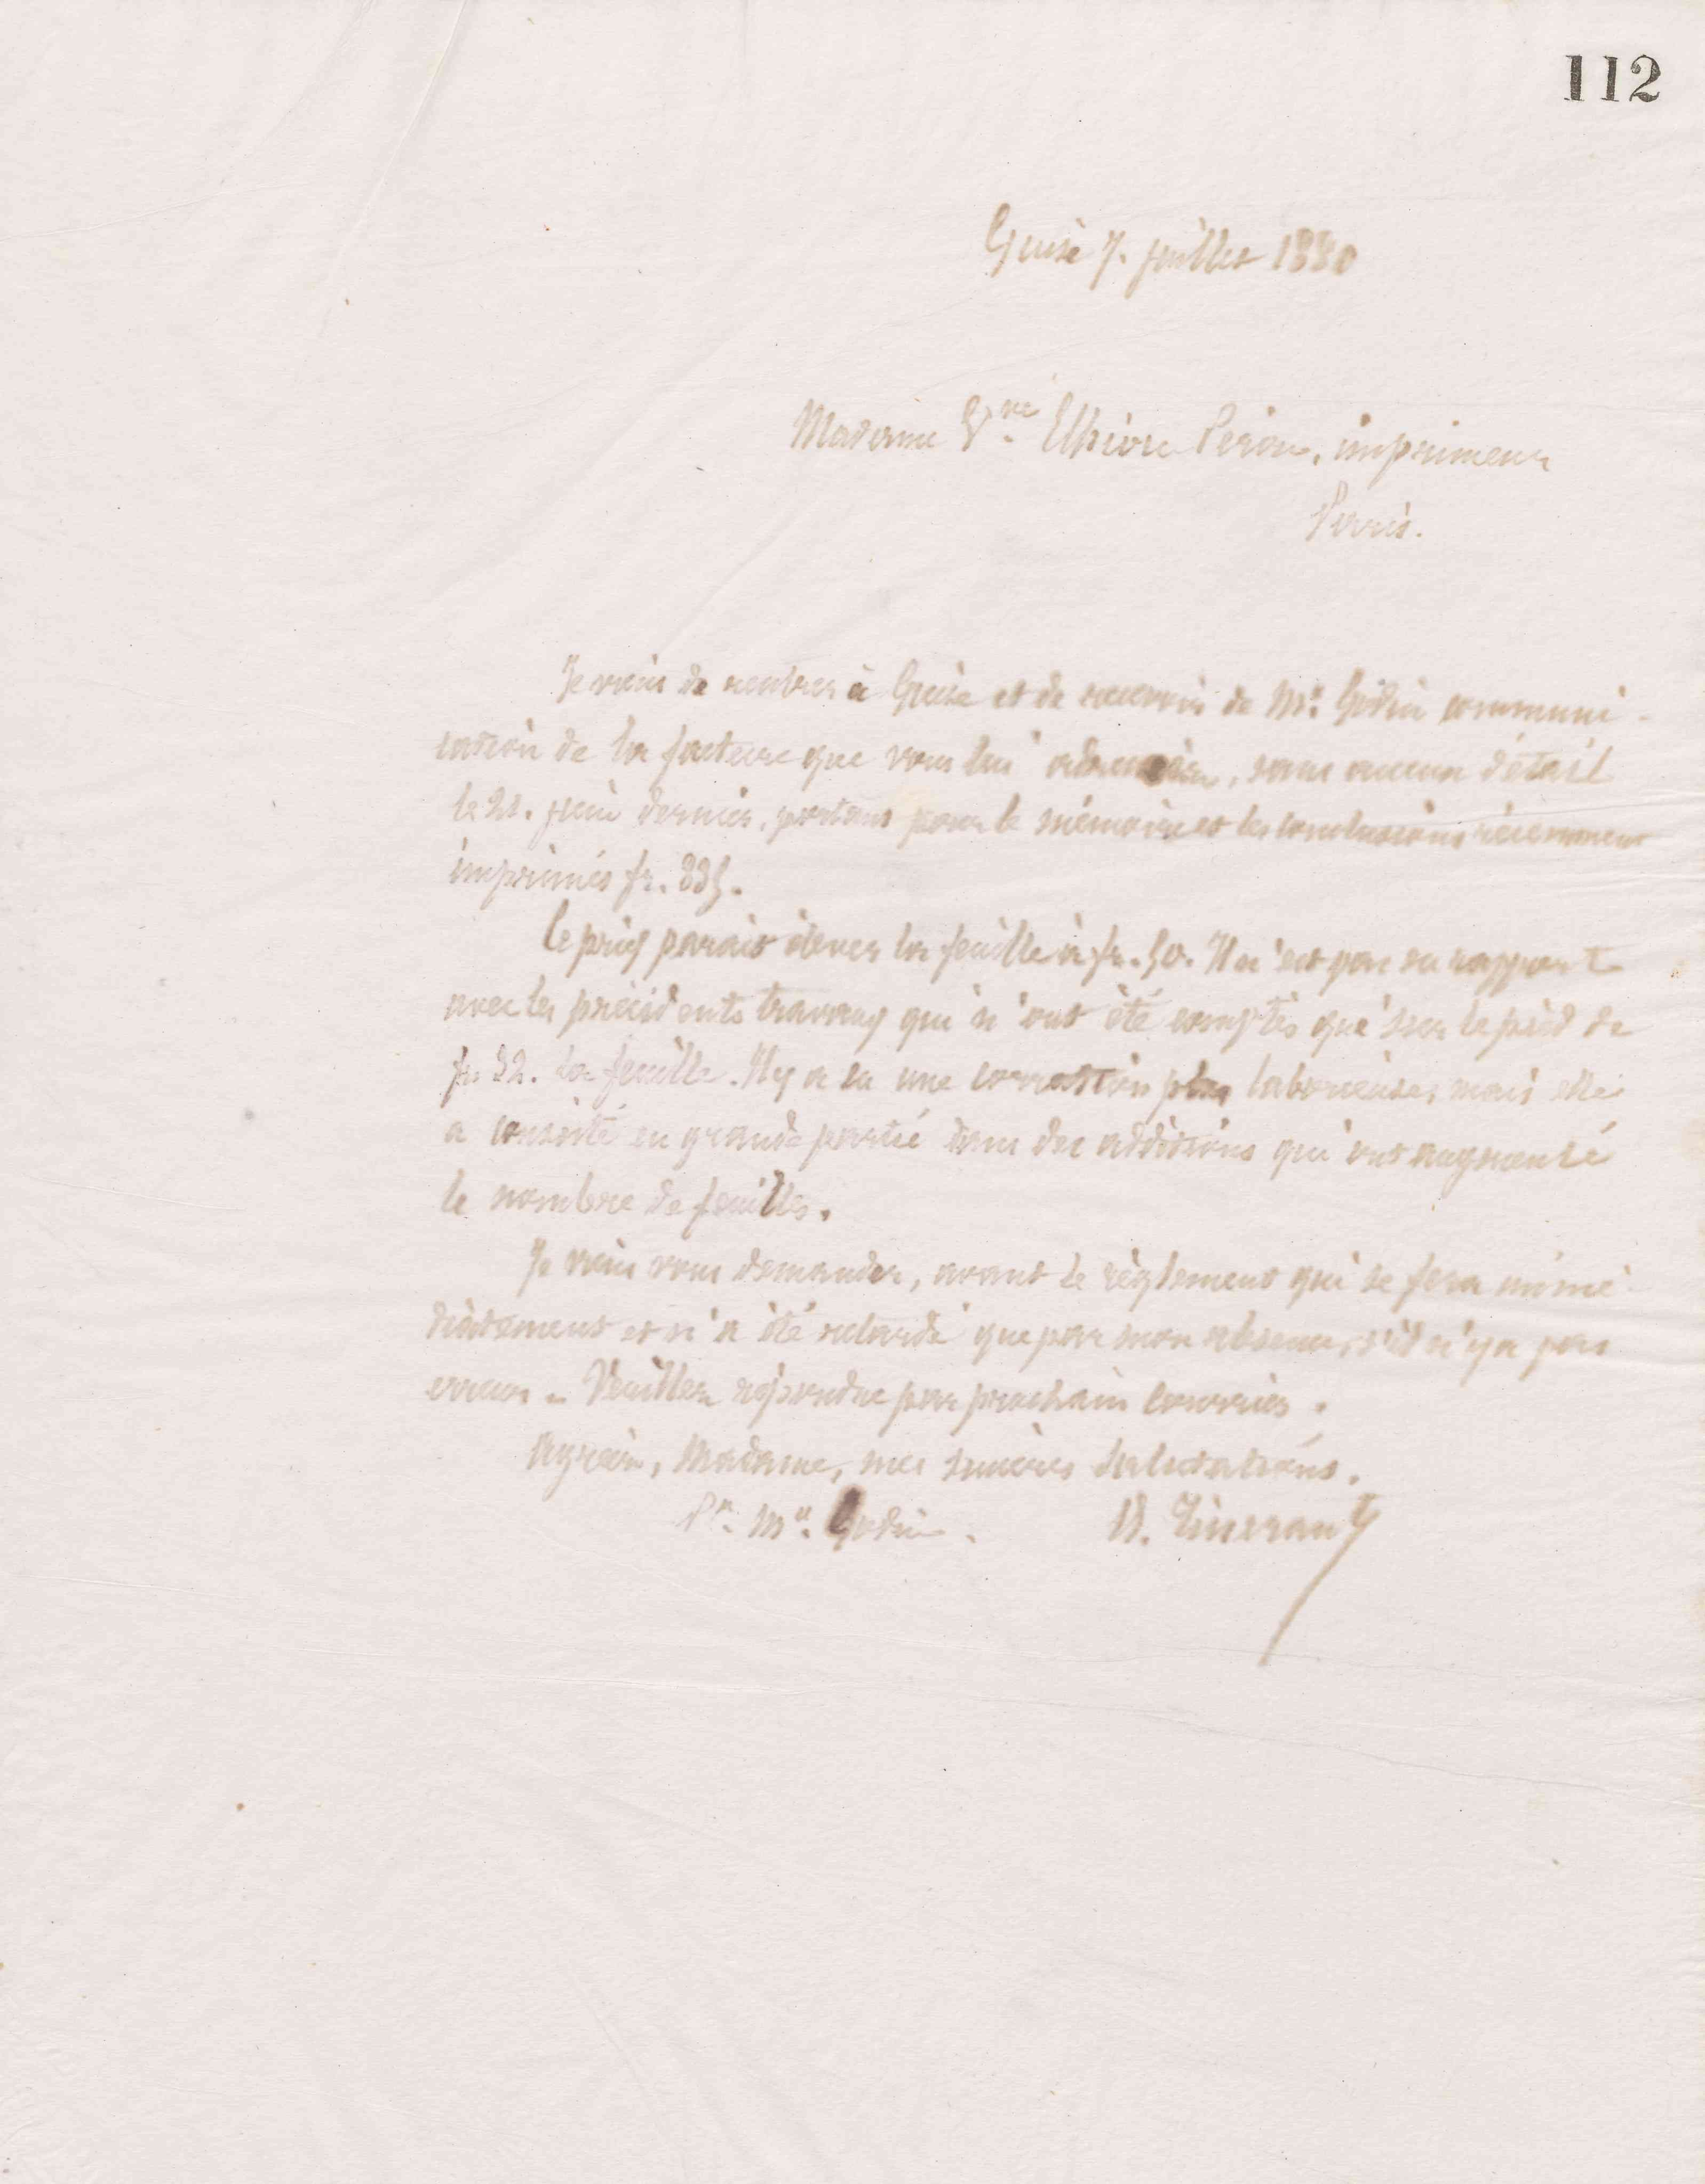 112
Guise 7. juillet 1880
Madame Vve Ethiou Pérou, imprimeur
Paris.
Je viens de rentrer à Guise et de recevoir de Mr. Godin communi-
cation de la facture que vous lui adressiez, sans aucun détail
le 21. juin dernier, portant pour le mémoire et les conclusions récemment
imprimés fr. 335.
Ce prix parait élever la feuille à fr. 50. Il n'est pas en rapport
avec les précédents travaux qui n'ont été comptés que sur le pied de
fr. 32. la feuille. Il y a eu une correction plus laborieuse, mais elle
a consisté en grande partie dans des additions qui ont augmenté
le nombre de feuilles.
Je viens vous demander, avant le règlement qui se fera immé-
diatement et n'a été retardé que par mon absence, s'il n'y a pas
erreur. – Veuillez répondre par prochain courrier.
Agréez, Madame, mes sincères salutations.
Pr. Mr. Godin.